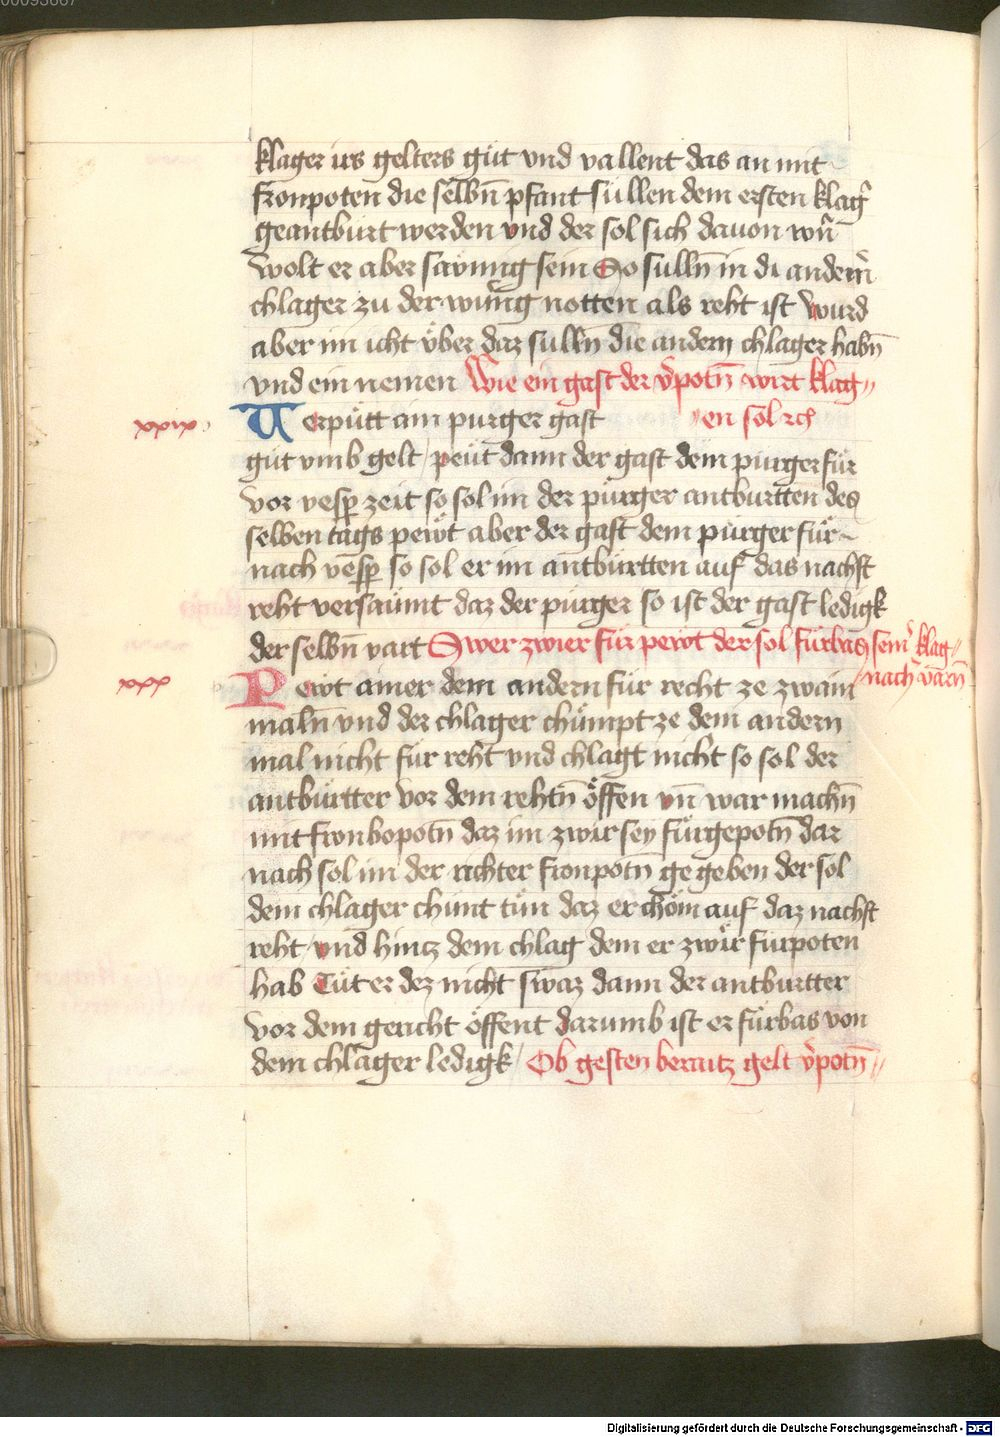 klager irs gelters gůt vnd vallent das an mit
fronpoten die selbñ pfant süllen dem ersten klag̃
geantburt werden vnd der sol sich dauon wñ
wolt er aber sawmig sein So sullñ in di andern̄
chlager zu der wrung notten als reht ist wurd
aber im icht v̈ber daz sullñ die andern chlager habñ
vnd ein nemen Wie ein gast der v̄potñ wirt klag〃
xxix. Verpütt aim purger gast 〃en sol rch
gut vmb gelt / peüt dann der gast dem purger für
vor vesp̱ zeit so sol im der purger antburtten des
selben tags pewt aber der gast dem purger für
nach vesp̱ so sol er im antburtten auf das nachst
reht versaumt daz der purger so ist der gast ledigk
der selbñ vart Swer zwier für pewt der sol fürbas sem̄ klag〃
xxx Pewt ainer dem andern für recht ze zwain 〃nach varñ
malñ vnd der chlager chümpt ze dem andern
mal nicht für reht vnd chlagt nicht so sol der
antbürtter vor dem rehtñ öffen vñ war machñ
mit fronbopotñ daz im zwir sey fürgepotñ dar
nach sol im der richter fronpotñ ge geben der sol
dem chlager chunt tün daz er chöm auf daz nachst
reht / vnd hincz dem chlag dem er zwir fürpoten
hab Tüt er dez nicht swaz dann der antburtter
vor dem gericht öffent darumb ist er fürbas von
dem chlager ledigk / Ob gesten beraitz gelt v̄potñ〃
Digitalisierung gefördert durch die Deutsche Forschungsgemeinschaft - DFG